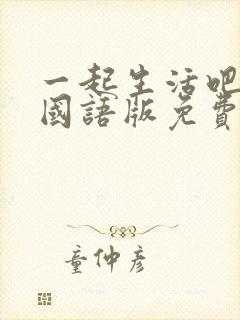 一起生活吧
國語版免費
童仲彥